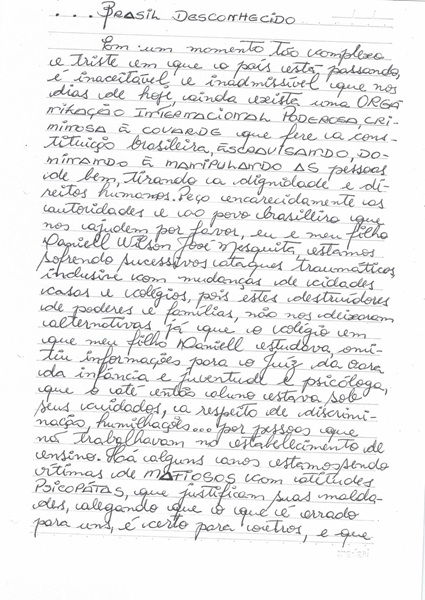 ... BRASIL DESCONHECIDO...
Em um momento tão complexo
e triste em que o país está passando,
é inaceitável e inadmissível que nos
dias de hoje, ainda exista uma ORGA
NIZAÇÃO INTERNACIONAL PODEROSA, CRI-
MINOSA À COVARDE que fere a cons-
tituição brasileira, ESCRAVISANDO, DO-
MINANDO À MANIPULANDO AS pessoas
de bem, tirando a dignidade e di-
reitos humanos. Peço encarecidamente as
autoridades e ao povo brasileiro que
nos ajudem por favor, eu e meu filho
Daniell Wilson José Mesquita, estamos
sofrendo sucessivos ataques traumáticos,
inclusive com mudanças de cidades
casas e colégios, pois estes destruidores
de poderes e famílias, não nos deixaram
alternativas, já que o colégio em
que meu filho Daniell estudava, omi-
tiu informações para o Juíz da Vara
da infância e juventude e psicóloga,
que o até então aluno estava sob
seus cuidados, a respeito de discrimi-
nação, humilhações... por pessoas que
no trabalhavam no estabelecimento de
ensino. Há alguns anos estamos sendo
vítimas de MAFIOSOS com atitudes
PSICOPÁTAS, que justificam suas malda-
des, alegando que o que é errado
para uns, é certo para outros, e que